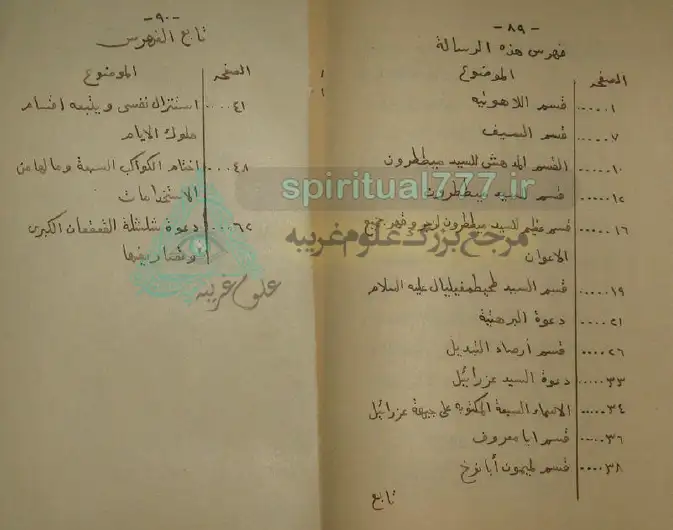 -٨٩-
فهرس هذه الرسالة
الصفحه الموضوع
١..... قسم اللاهوتيه
٧..... قسم السيف
١٠..... القسم المدهش للسيد ميططرون
١٢..... قسم السيد ميططرون
١٦..... قسم عظيم للسيد ميططرون لزجر وقهر جميع
الاعوان
١٩..... قسم السيد طحيطمغيليال عليه السلام
٢١..... دعوة البرهتية
٢٦..... قسم أرصاد التبديل
٣٣..... دعوة السيد عزرائيل
٣٤..... الاسماء السبعة المكتوبه على جبهة عزرائيل
٣٦..... قسم ابا معروف
٣٨..... قسم لميمون أبا نوخ
تابع
-٩٠-
تابع الفهرس
الصفحه الموضوع
٤١..... استنزال نفسى ويتبعه اقسام
ملوك الايام
٤٨..... اختام الكواكب السبعة ومالها من
الاستخدامات
٦٢..... دعوة شلشلة القعقعان الكبرى
وتصاريفها
spiritual777.ir
مرجع بزرگ علوم غریبه
علوم غریبه